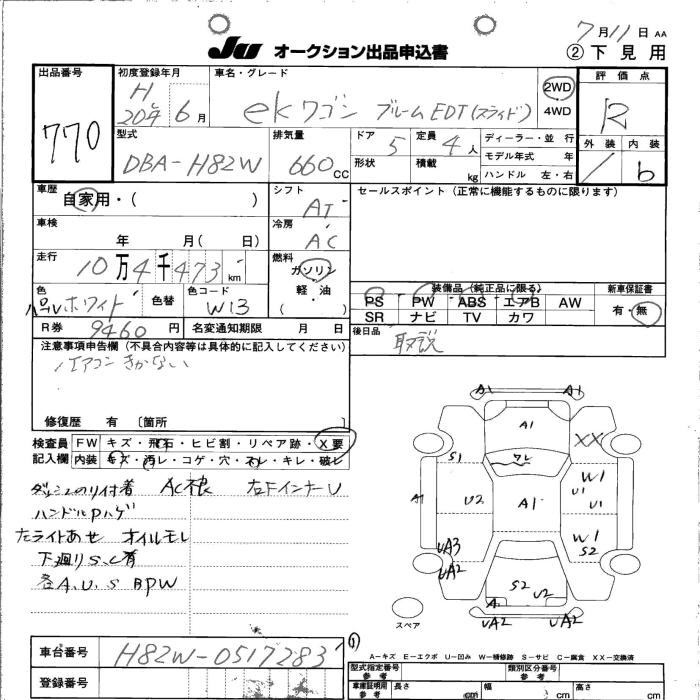 7月11日 AA
JU オークション出品申込書
② 下見用
出品番号
770
初度登録年月
H 20年 6月
車名・グレード
ekワゴン ブルームEDT(スライド)
2WD
4WD
評価点
R
外装 内装
/ b
型式
DBA-H82W
排気量
660 CC
ドア 5
定員 4人
形状
積載 kg
ディーラー・並行
モデル年式 年
ハンドル 左・右
車歴
自家用・( )
シフト
AT
セールスポイント (正常に機能するものに限ります)
車検
年 月( 日)
冷房
AC
走行
10万4千473 km
燃料
ガソリン
軽・油
( )
色
パールホワイト
色替
色コード
W13
装備品(純正品に限る)
PS PW ABS エアB AW
SR ナビ TV カワ
新車保証書
有・無
R券 9460円
名変通知期限 月 日
後日品
取説
注意事項申告欄 (不具合内容等は具体的に記入してください)
エアコン きかない
修復歴 有 〔箇所 〕
検査員
記入欄
FW キズ・飛石・ヒビ割・リペア跡・X要
内装 キズ・汚レ・コゲ・穴・ネレ・キレ・破レ
ダッシュのり付着 AC不良 右Fインナー U
ハンドルPハゲ
左ライトあせ オイルモレ
下廻りS、C有
各A.U.S BPW
A1 A1
A1
XX
S1 ワレ
W1
U1
U1
A1 U2 A1
W1
S2
UA3
UA2
S2 U2
A1
UA2 UA2
スペア
車台番号
H82W-0517283
登録番号
(1)
A-キズ E-エクボ U-凹み W-補修跡 S-サビ C-腐食 XX-交換済
型式指定番号
参考
類別区分番号
参考
車庫証明用
参考
長さ cm 幅 cm 高さ cm